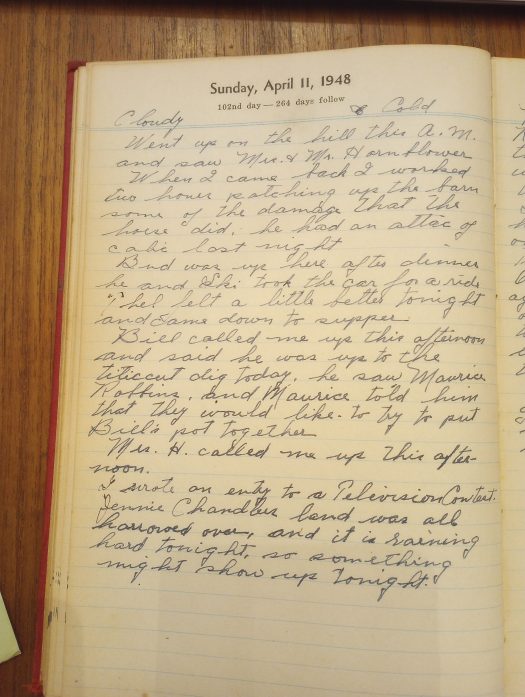 Sunday, April 11, 1948
102nd day—264 days follow
Cloudy & Cold
Went up on the hill this A.M.
and saw Mrs. & Mr. Hornblower
When I came back I worked
two hours patching up the barn
some of the damage that the
horse did, he had an attac of
colic last night
Bud was up here after dinner
he and Ski took the car for a ride
Thel felt a little better tonight
and came down to supper
Bill called me up this afternoon
and said he was up to the
titicut dig today, he saw Maurice
Robbins, and Maurice told him
that they would like to try to put
Bill's pot together
Mrs. H. called me up this after-
noon.
I wrote an enty to a Television Contest.
Jennie Chandlers land was all
harrowed over, and it is raining
hard tonight, so something
might show up tonight.